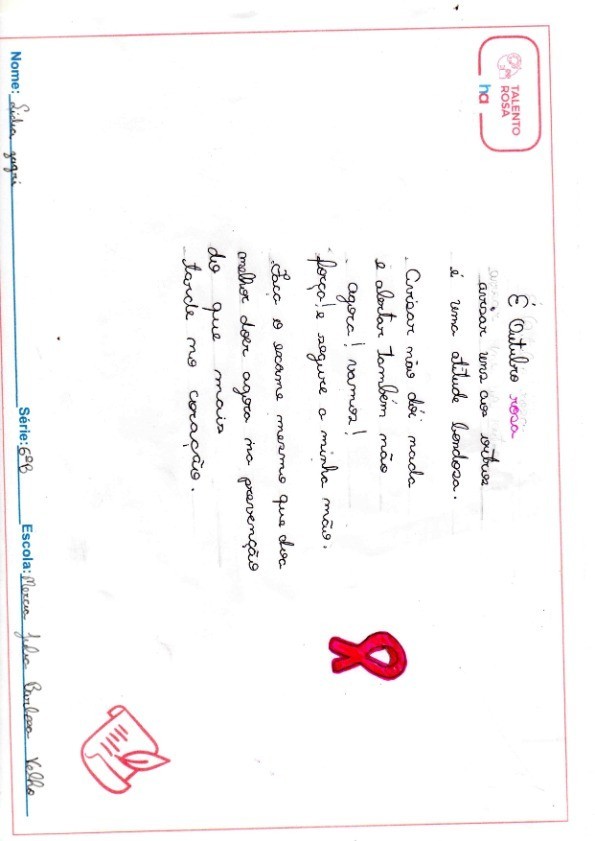 TALENTO
ROSA
ha
É Outubro rosa
avisar uns aos outros
é uma atitude bondosa.
Avisar não dói nada
e alertar também não
agora! vamos!
força! e segure a minha mão.
Faça o exame mesmo que doa
melhor doer agora na prevenção
do que mais
tarde no coração.
Nome: Lidia
Série: 6ºB
Escola: Julia Barbosa Velho